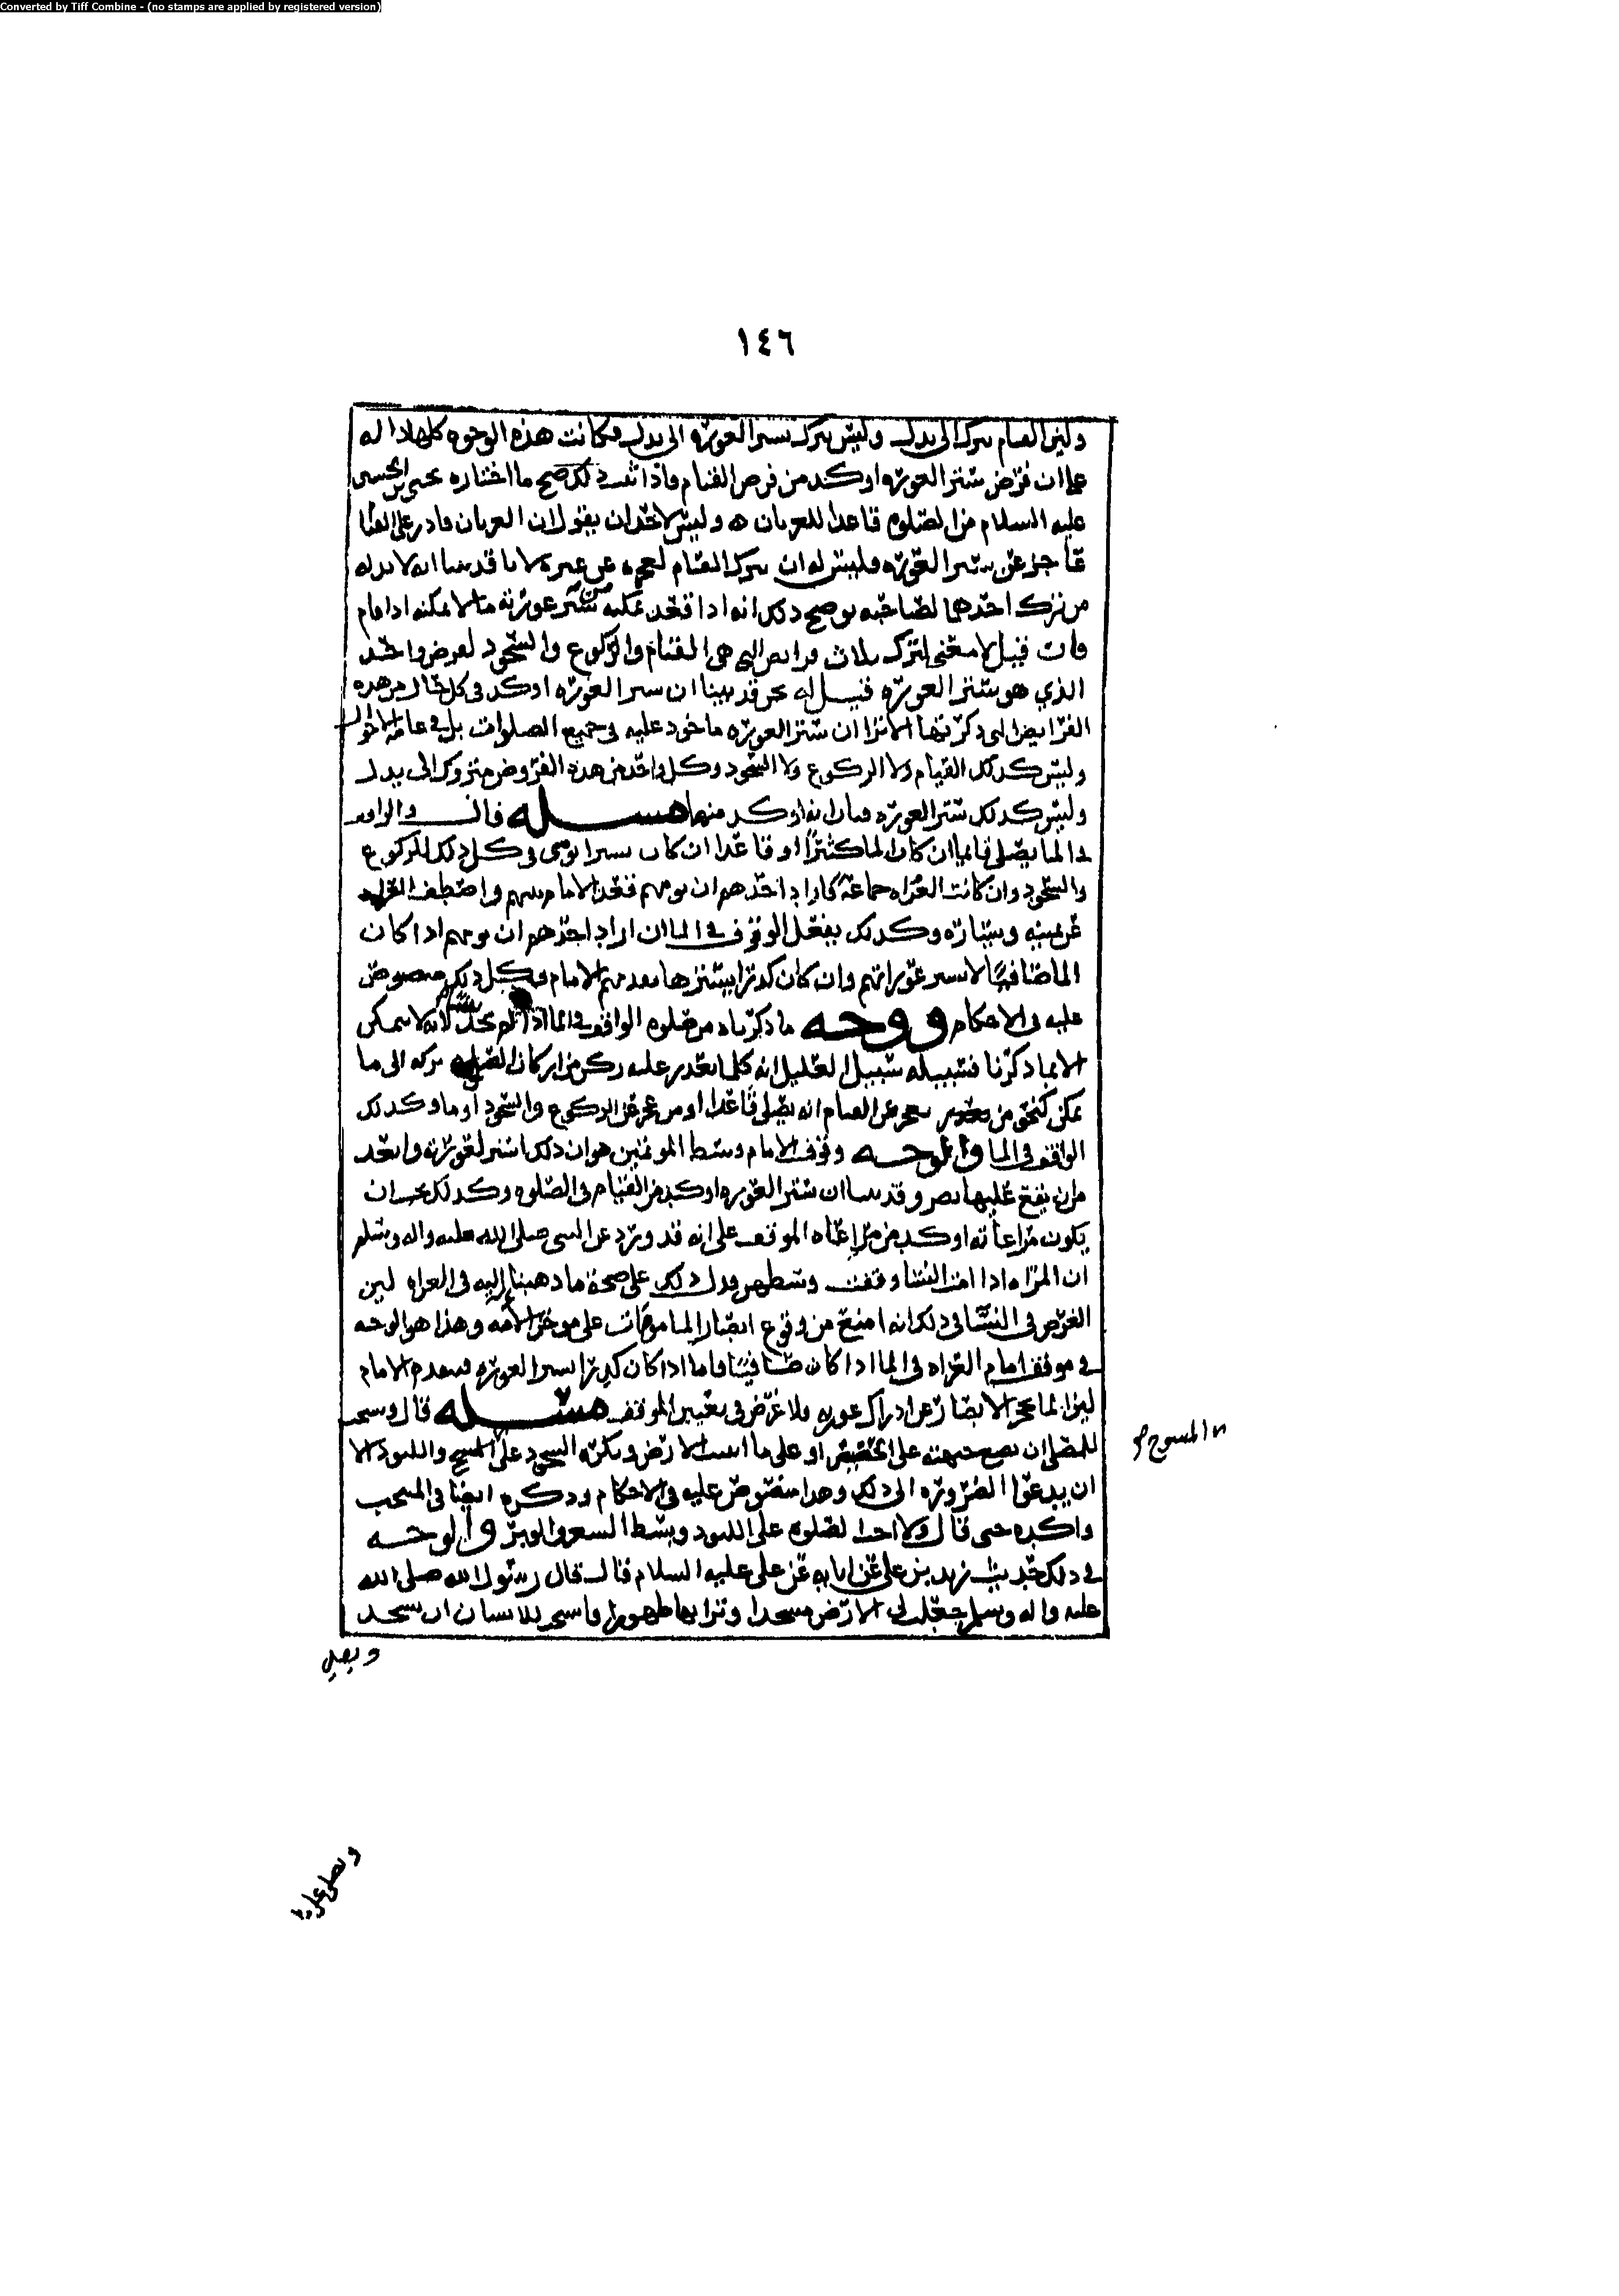 Converted by Tiff Combine - (no stamps are applied by registered version)
١٤٦
وليس القيام يترك الى بدل وليس يترك ستر العورة الى بدل فكانت هذه الوجوه كلها دالة
على ان فرض ستر العورة اوكد من فرض القيام فاذا ثبت ذلك صح ما اختاره يحيى بن الحسين
عليه السلام من الصلوة قاعدا للعريان وليس لاحد ان يقول ان العريان قادر على القيام
عاجز عن ستر العورة فليس له ان يترك القيام لعجزه عن غيره لانا قد بينا انه لا بد له
من ترك احدهما لصاحبه يوضح ذلك انه اذا قعد يمكنه من ستر عورته ما لا يمكنه اذا قام
فان قيل لا معنى لترك ثلاث فرائض التي هي القيام والركوع والسجود لفرض واحد
الذي هو ستر العورة قيل له نحن قد بينا ان ستر العورة اوكد في كل حال من هذه
الفرايض التي ذكرتها الا ترا ان ستر العورة ماخوذ عليه في جميع الصلوات بل في عامة الاحوال
وليس كذلك القيام ولا الركوع ولا السجود وكل واحد من هذه الفروض متروك الى بدل
وليس كذلك ستر العورة فبان انه اوكد منها مسـله قال والواقف
في الما يصلي قايما ان كان الما كثيرا او قاعدا ان كان يسيرا يومي في كل ذلك للركوع
والسجود وان كانت العراه جماعة فاراد احدهم ان يومهم قعد الامام بينهم واصطف العراة
عن يمينه ويساره وكذلك يفعل الوقوف في الما ان اراد احدهم ان يومهم اذا كان
الما صافيا لا يستر عوراتهم وان كان كدرا يسترها تقدمهم الامام وكل ذلك منصوص
عليه في الاحكام ووجه ما ذكرناه من صلوة الواقف في الما اذا لم يجد لانه لا يتمكن
الا بما ذكرنا فسبيله سبيل العليل انه كلما تعذر عليه ركن من اركان الصلوة تركه الى ما
يمكن كنحو من يعجز عن القيام انه يصلي قاعدا او من عجز عن الركوع والسجود اوما وكذلك
الواقف في الما والوجه وقوف الامام وسط المؤتمين هو ان ذلك استر لعورته وابعد
من ان يقع عليها بصر وقد بينا ان ستر العورة اوكد من القيام في الصلوة وكذلك يجب ان
يكون مراعاته اوكد من مراعاه الموقف على انه قد ورد عن النبي صلى الله عليه واله وسلم
ان المراه اذا امت النسا وقفت وسطهن ودل ذلك على صحة ما ذهبنا اليه في العراه لين
الغرض في النسا في ذلك انه امنع من وقوع ابصار المامومات على موخر الامه وهذا هو الوجه
في موقف امام العراه في الما اذا كان صافيا فاما اذا كان كدرا يستر العورة فيقدم الامام
لين الما يحجز الابصار عن ادراك عورته فلا غرض في تغيير الموقف مسـله قال ويستحب
للمصلي ان يضع جبهته على الحضيض او على ما انبتت الارض ويكره السجود على المسح واللبود الا
ان يدعو الضرورة الى ذلك وهذا منصوص عليه في الاحكام وذكره ايضا في المنتخب
واكده حتى قال ولا احب الصلوة على اللبود وبسط الشعر والوبر والوجه
في ذلك حديث زيد بن علي عن ابايه عن علي عليه السلام قال قال رسول الله صلى الله
عليه واله وسلم جعلت لي الارض مسجدا وترابها طهورا فاستحب للانسان ان يسجد
ن المسوح
ويصلي
ويصلي على